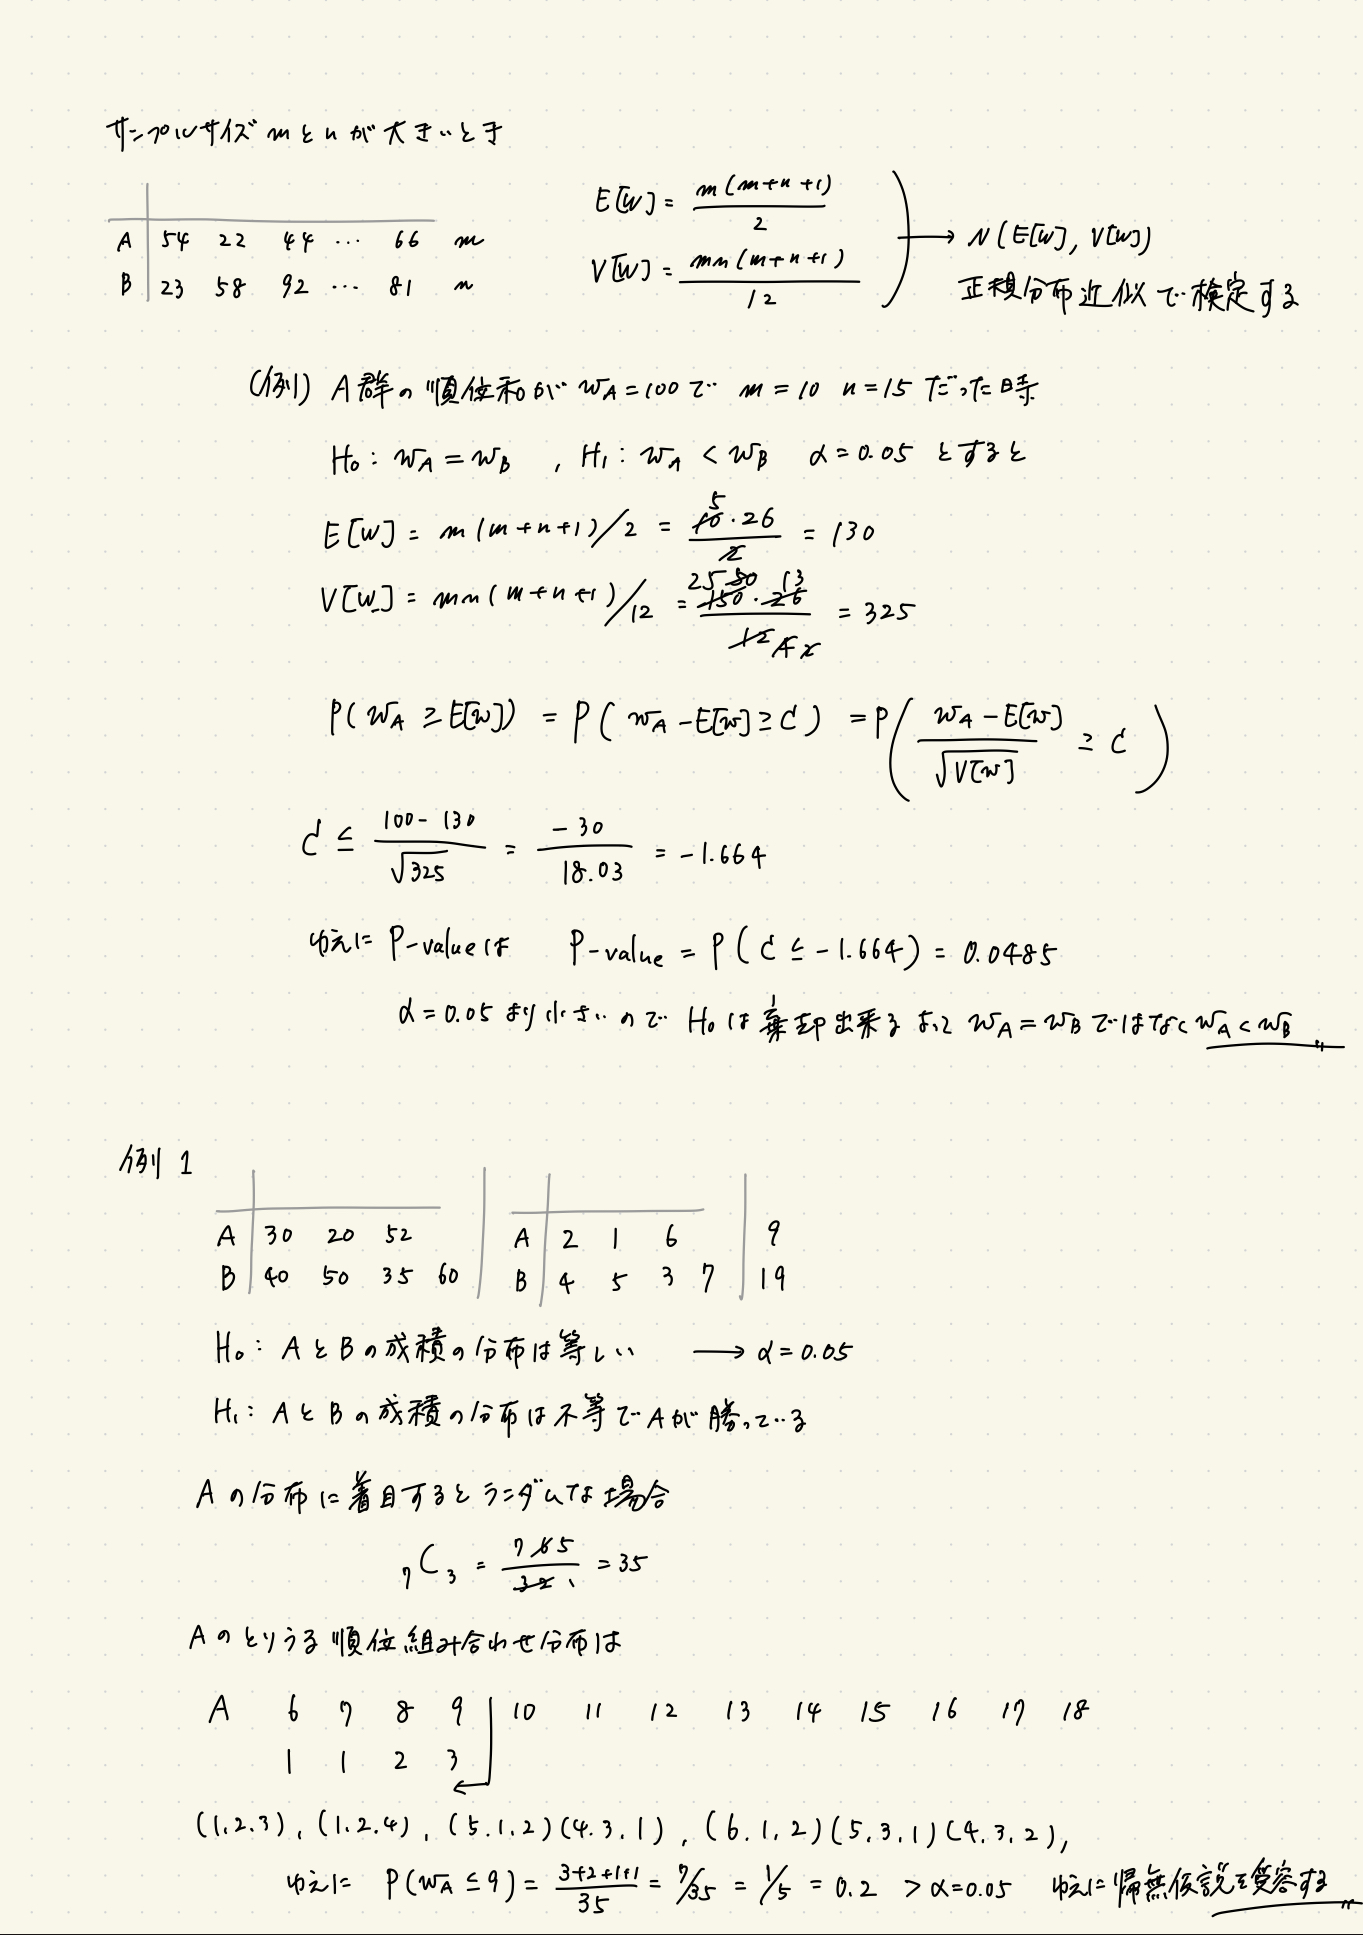 サンプルサイズ m と n が大きいとき
A 54 22 44 … 66 m
B 23 58 92 … 81 n
E[W] = m(m+n+1)/2
V[W] = mn(m+n+1)/12
→ N(E[W], V[W])
正規分布近似で検定する
(例) A群の順位和が W_A=100で m=10 n=15 だった時
H₀: W_A = W_B , H₁: W_A < W_B α=0.05 とすると
E[W] = m(m+n+1)/2 = 10・26/2 = 130
5
V[W] = mn(m+n+1)/12 = 150・26/12 = 325
25 50 13
4 2
P(W_A ≥ E[W]) = P(W_A - E[W] ≥ C) = P((W_A - E[W])/√V[W] ≥ C)
C ≤ (100-130)/√325 = -30/18.03 = -1.664
ゆえに P-valueは P-value = P(C ≤ -1.664) = 0.0485
α=0.05 より小さいので H₀は棄却出来る よって W_A = W_B ではなく W_A < W_B 〃
例 1
A 30 20 52
B 40 50 35 60
A 2 1 6 9
B 4 5 3 7 19
H₀: AとBの成績の分布は等しい → α=0.05
H₁: AとBの成績の分布は不等でAが勝っている
Aの分布に着目するとランダムな場合
₇C₃ = 7 6 5/3 2 1 = 35
Aのとりうる順位組み合わせ分布は
A 6 7 8 9 10 11 12 13 14 15 16 17 18
1 1 2 3
(1.2.3), (1.2.4), (5.1.2)(4.3.1), (6.1.2)(5.3.1)(4.3.2),
ゆえに P(W_A ≤ 9) = 3+2+1+1/35 = 7/35 = 1/5 = 0.2 > α=0.05 ゆえに帰無仮説を受容する 〃